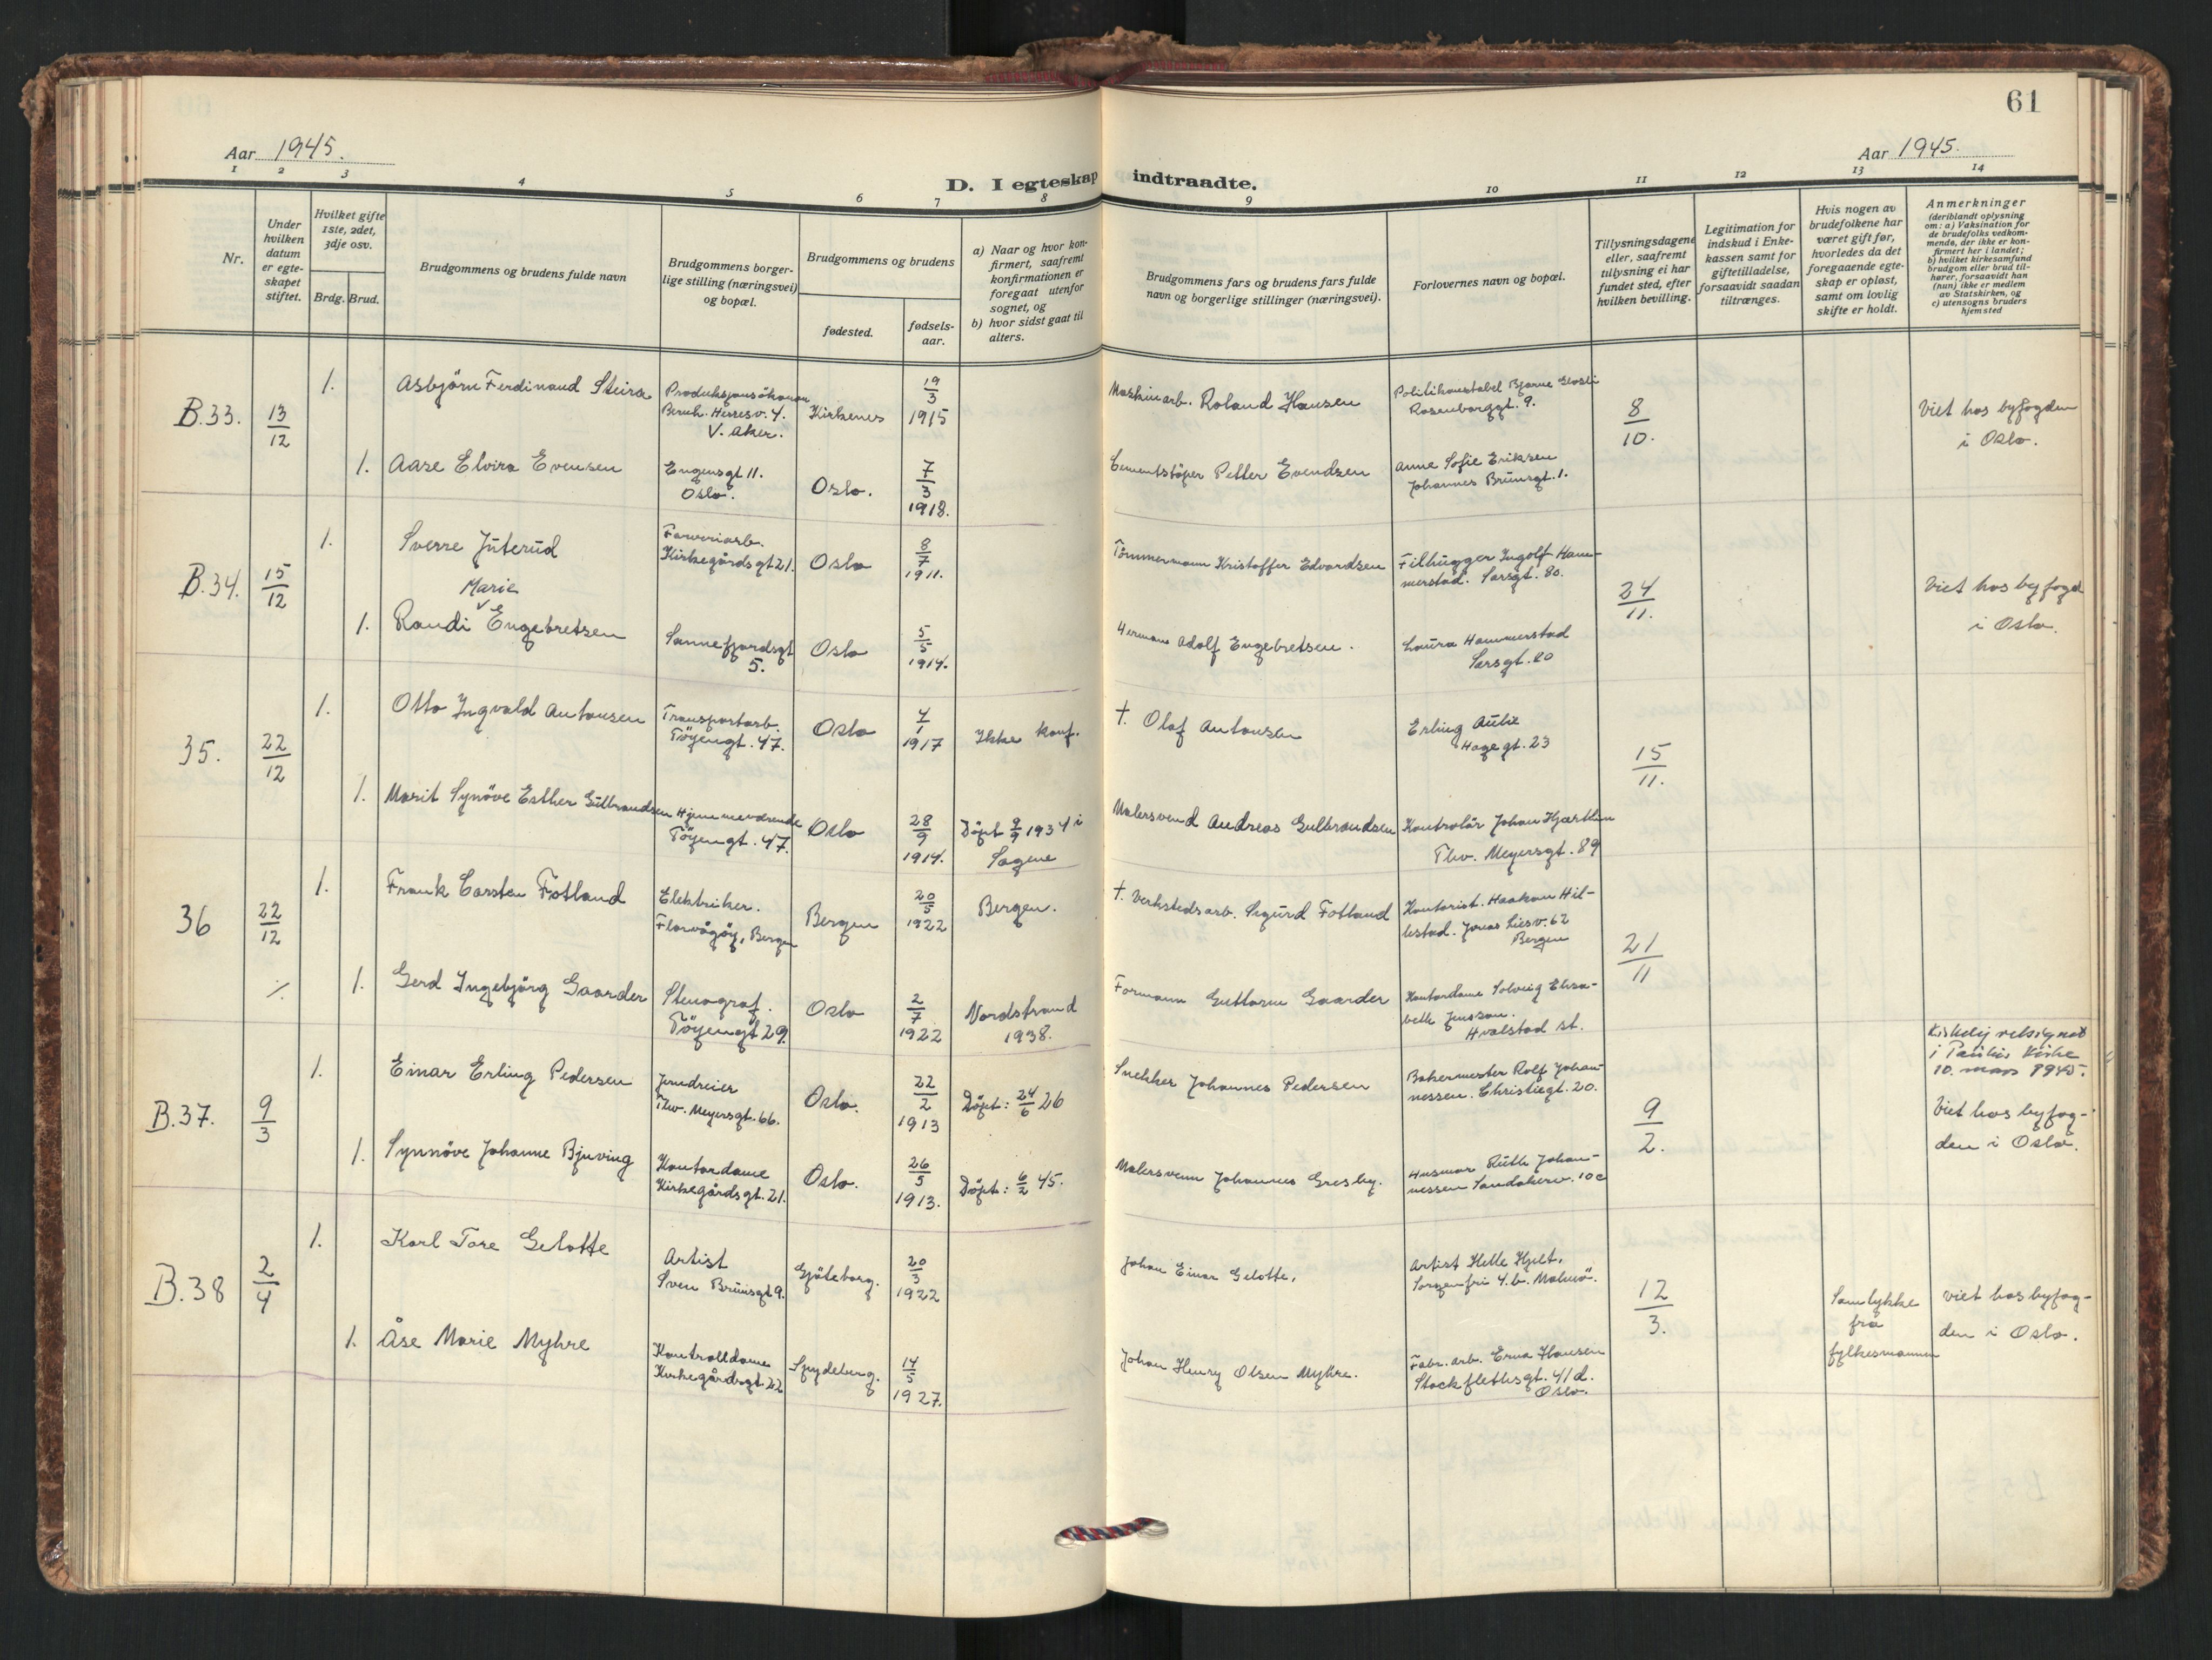 61
Aar 1945.
Aar 1945.
D. I egteskap indtraadte.
1 2 3 4 5 6 7 8 9 10 11 12 13 14
Nr.
Under
hvilken
datum
er egte-
skapet
stiftet.
Hvilket gifte
1ste, 2det,
3dje osv.
Brdg. Brud.
Brudgommens og brudens fulde navn
Brudgommens borger-
lige stilling (næringsvei)
og bopæl.
Brudgommens og brudens
fødested.
fødsels-
aar.
a) Naar og hvor kon-
firmert, saafremt
konfirmationen er
foregaat utenfor
sognet, og
b) hvor sidst gaat til
alters.
Brudgommens fars og brudens fars fulde
navn og borgerlige stillinger (næringsvei).
Forlovernes navn og bopæl.
Tillysningsdagene
eller, saafremt
tillysning ei har
fundet sted, efter
hvilken bevilling.
Legitimation for
indskud i Enke-
kassen samt for
giftetilladelse,
forsaavidt saadan
tiltrænges.
Hvis nogen av
brudefolkene har
været gift før,
hvorledes da det
foregaaende egte-
skap er opløst,
samt om lovlig
skifte er holdt.
Anmerkninger
(deriblandt oplysning
om: a) Vaksination for
de brudefolks vedkom-
mende, der ikke er kon-
firmert her i landet;
b) hvilket kirkesamfund
brudgom eller brud til-
hører, forsaavidt han
(hun) ikke er medlem
av Statskirken, og
c) utensogns bruders
hjemsted
B.33. 13/12
1. Asbjörn Ferdinand Steira
Produksjonsökonom
Herresv. 4.
V. Aker.
Kirkenes
19/3
1915
Maskinarb. Roland Hansen
Politikonstabel Bjarne
Rosenborggt. 9.
8/10.
Viet hos byfogden
i Oslo.
1. Aase Elvira Evensen
Engensgt 11.
Oslo.
Oslo.
7/3
1918.
Cementstöper Petter Evendsen
Anne Sofie Eriksen
Johannes Brunsgt. 1.
B.34. 15/12
1. Sverre Juterud
Farveriarb.
Kirkegårdsgt 21.
Oslo
8/7
1911.
Tömmermann Kristoffer Edvardsen
Filhugger Ingolf Ham-
merstad. Sarsgt. 80.
24/11.
Viet hos byfogd
i Oslo.
Marie
1. Randi Engebretsen
Sannefjordsgt
5.
Oslo
5/5
1914.
Herman Adolf Engebretsen.
Laura Hammerstad
Sarsgt. 80
35. 22/12
1. Otto Ingvald Antonsen
Transportarb.
Töyengt. 47.
Oslo
4/1
1917
Ikke konf.
†. Olaf Antonsen
Erling Aulie
Hagegt. 23
15/11.
1. Marit Synöve Esther Gulbrandsen
Hjemmeværende
Töyengt. 47.
Oslo
28/9
1914.
Döpt 9/9 1934 i
Sagene
Malersvend Andreas Gulbrandsen
Kontrolör Johan Hjartlin
Thv. Meyersgt. 89
36 22/12
1. Frank Carsten Fotland
Elektriker.
Florvågöy, Bergen
Bergen
20/5
1922
Bergen.
†. Verkstedsarb. Sigurd Fotland
Kontorist. Haakon Hil-
lestad. Jonas Liesv. 62
Bergen
21/11
./.
1. Gerd Ingebjörg Gaarder
Stenograf.
Töyengt 29.
Oslo
2/7
1922
Nordstrand
1938.
Formann Guttorm Gaarder
Kontordame Solveig Elisa-
beth Jensson.
Hvalstad st.
B.37. 9/3
1. Einar Erling Pedersen
Thv. Meyersgt. 66.
Oslo.
22/2
1913
Döpt: 24/6 26
Snekker Johannes Pedersen
Bakermester Rolf Johan-
nessen. Christiegt. 20.
9/2.
Kirkelig velsignet
i Paulus Kirke
10. mars 1945.
Viet hos byfog-
den i Oslo.
1. Synnöve Johanne Bjuving
Kontordame
Kirkegårdsgt. 21.
Oslo.
26/5
1913.
Döpt: 6/2 45.
Malersvenn Johannes Gresby.
Husmor Ruth Johan-
nessen Sandakerv. 10c
B.38 2/4
1. Karl Tore Gelotte
Artist
Sven Brunsgt 9.
Gjöteborg.
20/3
1922
Johan Einar Gelotte.
Artist Helle Hjelt.
Sorgenfri 4.b. Malmö.
12/3.
Samtykke
fra
fylkesmannen
viet hos byfog-
den i Oslo.
1. Åse Marie Myhre
Kontrolldame
Kirkegårdsgt. 22
Spydeberg.
14/5
1927.
Johan Henry Olsen Myhre.
Fabr. arb. Erna Hansen
Stockflethsgt. 41 d.
Oslo.